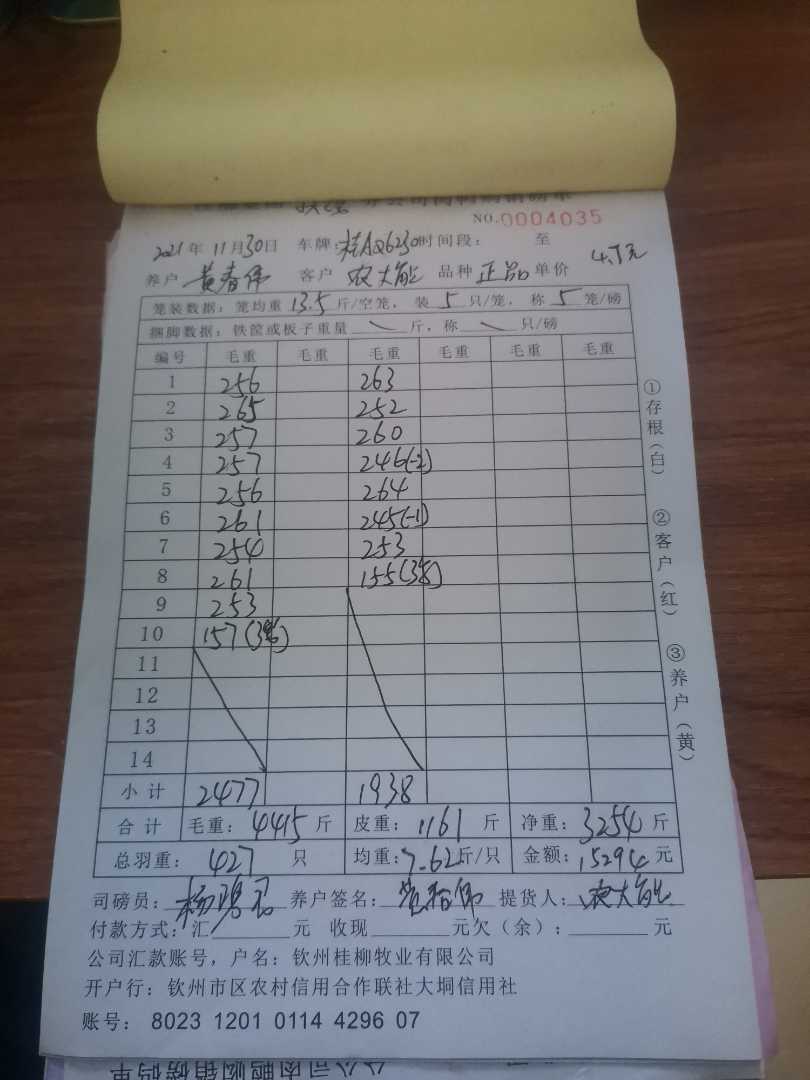 分公司肉鸭购销磅单
NO.0004035
2021年11月30日 车牌:桂AQ6230时间段: 至
养户 黄春伟 客户 农大能 品种 正品 单价 4.7元
笼装数据: 笼均重 13.5 斤/空笼, 装 5 只/笼, 称 5 笼/磅
捆脚数据: 铁筐或板子重量 \ 斤, 称 \ 只/磅
编号 毛重 毛重 毛重 毛重 毛重 毛重
1 256 263
2 265 252
3 257 260
4 257 246(-2)
5 256 264
6 261 245(-1)
7 254 253
8 261 155(3笼)
9 253
10 157(3笼)
11
12
13
14
小计 2477 1938
合计 毛重: 4415 斤 皮重: 1161 斤 净重: 3254 斤
总羽重: 427 只 均重: 7.62斤/只 金额: 15294 元
司磅员: 养户签名: 提货人: 农大能
付款方式: 汇 元 收现 元欠(余): 元
公司汇款账号, 户名: 钦州桂柳牧业有限公司
开户行: 钦州市区农村信用合作联社大垌信用社
账号: 8023 1201 0114 4296 07
①存根(白)
②客户(红)
③养户(黄)
公司肉鸭购销磅码单